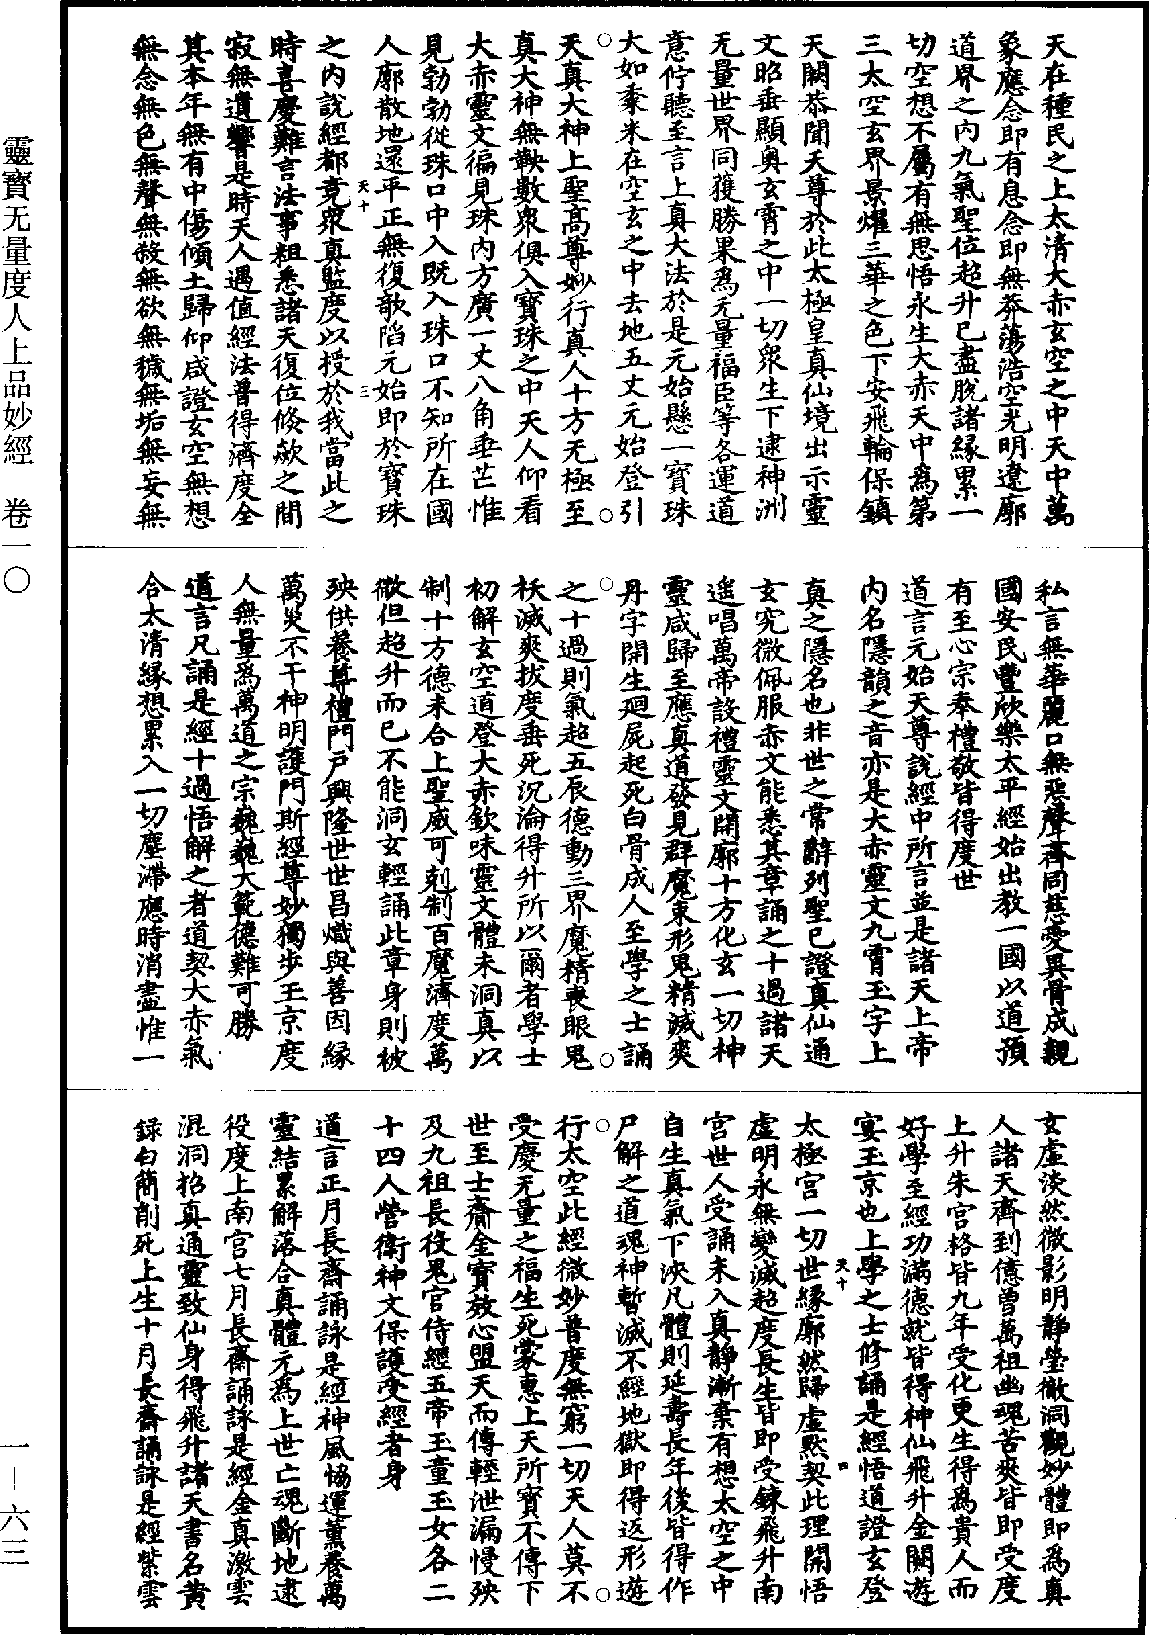 天在種民之上太清大赤玄空之中天中萬
象應念即有息念即無莽蕩浩空光明遼廓
道界之内九氣聖位超升已盡脫諸緣累一
切空想不屬有無思悟永生大赤天中為第
三太空玄界景耀三華之色下安飛輪保鎮
天闕恭聞天尊於此太極皇真仙境出示靈
文昭垂顯奥玄霄之中一切衆生下逮神洲
无量世界同獲勝果為无量福臣等各運道
意佇聽至言上真大法於是元始懸一寶珠
大如黍米在空玄之中去地五丈元始登引
天真大神上聖高尊妙行真人十方无極至
真大神無鞅數衆俱入寶珠之中天人仰看
大赤靈文徧見珠内方廣一丈八角垂芒惟
見勃勃從珠口中入既入珠口不知所在國
人廓散地還平正無復欹陷元始即於寶珠
之内說經都竟衆真監度以授於我當此之
天十 三
時喜慶難言法事粗悉諸天復位倏歘之間
寂無遺響是時天人遇值經法普得濟度全
其本年無有中傷傾土歸仰咸證玄空無想
無念無色無聲無殺無欲無穢無垢無妄無
私言無華麗口無惡聲齊同慈愛異骨成親
國安民豐欣樂太平經始出教一國以道預
有至心宗奉禮敬皆得度世
道言元始天尊說經中所言並是諸天上帝
内名隱韻之音亦是大赤靈文九霄玉字上
真之隱名也非世之常辭列聖已證真仙通
玄究微佩服赤文能悉其章誦之十過諸天
遥唱萬帝設禮靈文開廓十方化玄一切神
靈咸歸至應真道發見群魔束形鬼精滅爽
丹字開生廻屍起死白骨成人至學之士誦
之十過則氣超五辰德動三界魔精喪眼鬼
祅滅爽拔度垂死沉淪得升所以爾者學士
初解玄空道登大赤欽味靈文體未洞真以
制十方德未合上聖威可剋制百魔濟度萬
微但超升而已不能洞玄輕誦此章身則被
殃供養尊禮門戶興隆世世昌熾與善因緣
萬災不干神明護門斯經尊妙獨步玉京度
人無量為萬道之宗巍巍大範德難可勝
道言凡誦是經十過悟解之者道契大赤氣
合太清緣想累入一切塵滯應時消盡惟一
玄虛淡然微影明靜瑩徹洞觀妙體即為真
人諸天齊到億曾萬祖幽魂苦爽皆即受度
上升朱宮格皆九年受化更生得為貴人而
好學至經功滿德就皆得神仙飛升金闕遊
宴玉京也上學之士修誦是經悟道證玄登
太極宮一切世緣廓然歸虛默契此理開悟
天十 四
虛明永無變滅超度長生皆即受鍊飛升南
宮世人受誦未入真靜漸棄有想太空之中
自生真氣下泱凡體則延壽長年後皆得作
尸解之道魂神暫滅不經地獄即得返形遊
行太空此經微妙普度無窮一切天人莫不
受慶无量之福生死蒙惠上天所寶不傳下
世至士齎金寶效心盟天而傳輕泄漏慢殃
及九祖長役鬼官侍經五帝玉童玉女各二
十四人營衛神文保護受經者身
道言正月長齋誦詠是經神風協運薰養萬
靈結累解落合真體元為上世亡魂斷地逮
役度上南宮七月長齋誦詠是經金真激雲
混洞招真通靈致仙身得飛升諸天書名黃
録白簡削死上生十月長齋誦詠是經紫雲
靈寶无量度人上品妙經 卷一〇
一—六三